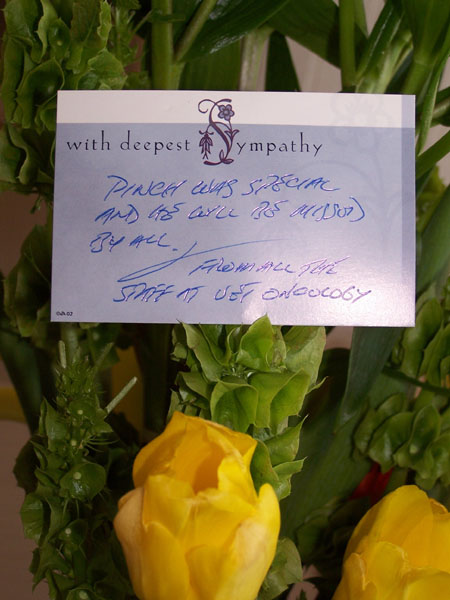 with deepest Sympathy
PINCH WAS SPECIAL
AND HE WILL BE MISSED
BY ALL.
FROM ALL THE
STAFF AT VET ONCOLOGY